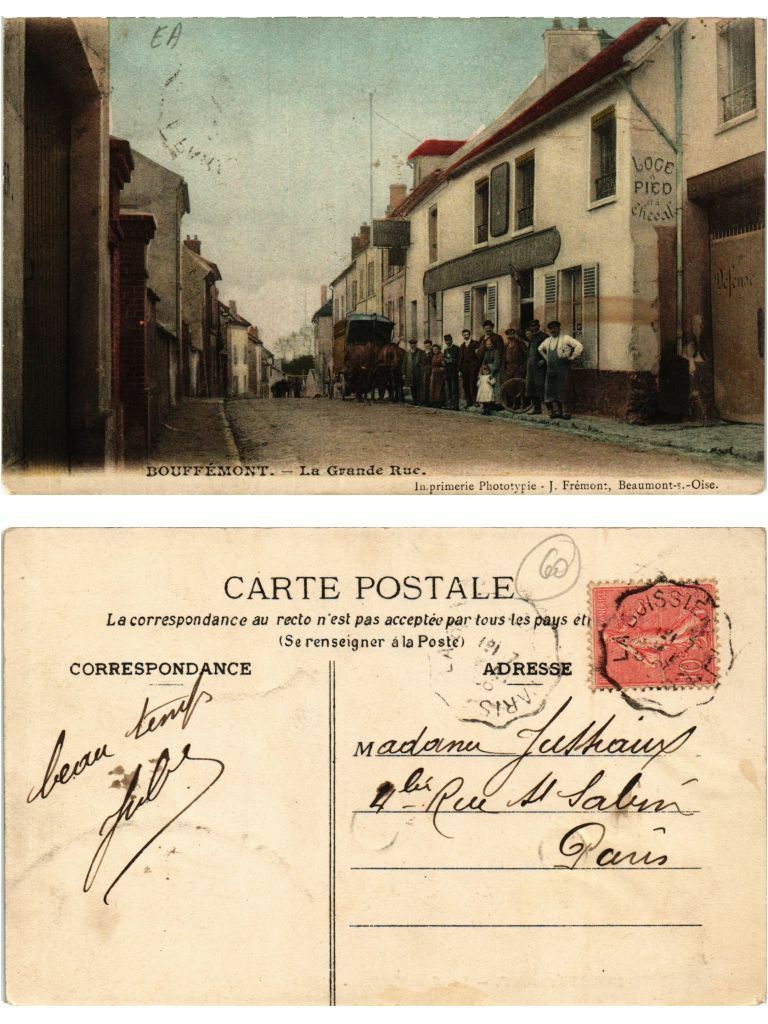 EA
LOGE
A
PIED
ET A
Cheval
Défense
BOUFFÉMONT. – La Grande Rue.
Imprimerie Phototypie - J. Frémont, Beaumont-s.-Oise.
60
CARTE POSTALE
La correspondance au recto n'est pas acceptée par tous les pays
(Se renseigner à la Poste)
CORRESPONDANCE
ADRESSE
PARIS
10
beau temps
Jules
Madame
4 bis Rue St Sabin
Paris